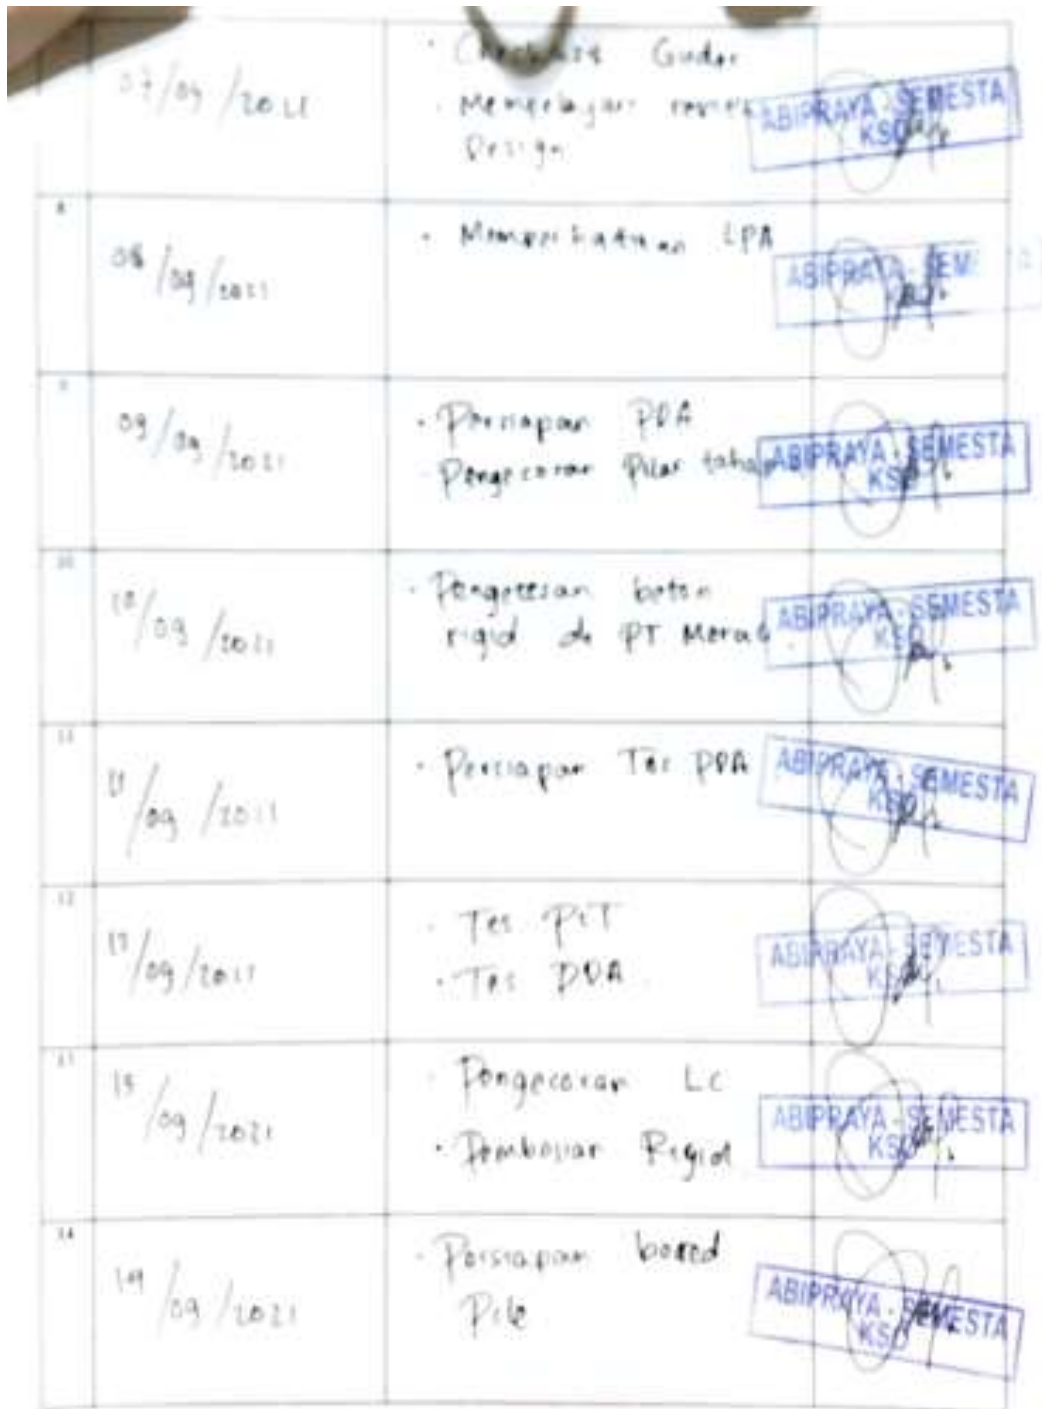 07/09/2021
Girder
Mempelajari review
Design
ABIPRAYA - SEMESTA
KSO
8
08/09/2021
Memperhatikan LPA
ABIPRAYA - SEM
9
09/09/2021
Persiapan PDA
Pengecoran Pilar tahap
ABIPRAYA - SEMESTA
KSO
10
10/09/2021
Pengetesan beton
rigid di PT Merak
ABIPRAYA - SEMESTA
KSO
11
11/09/2021
Persiapan Tes PDA
ABIPRAYA - SEMESTA
KSO
12
12/09/2021
Tes PIT
Tes PDA
ABIPRAYA - SEMESTA
KSO
13
13/09/2021
Pengecoran LC
Pembesian Rigid
ABIPRAYA - SEMESTA
KSO
14
14/09/2021
Persiapan bored
Pile
ABIPRAYA - SEMESTA
KSO